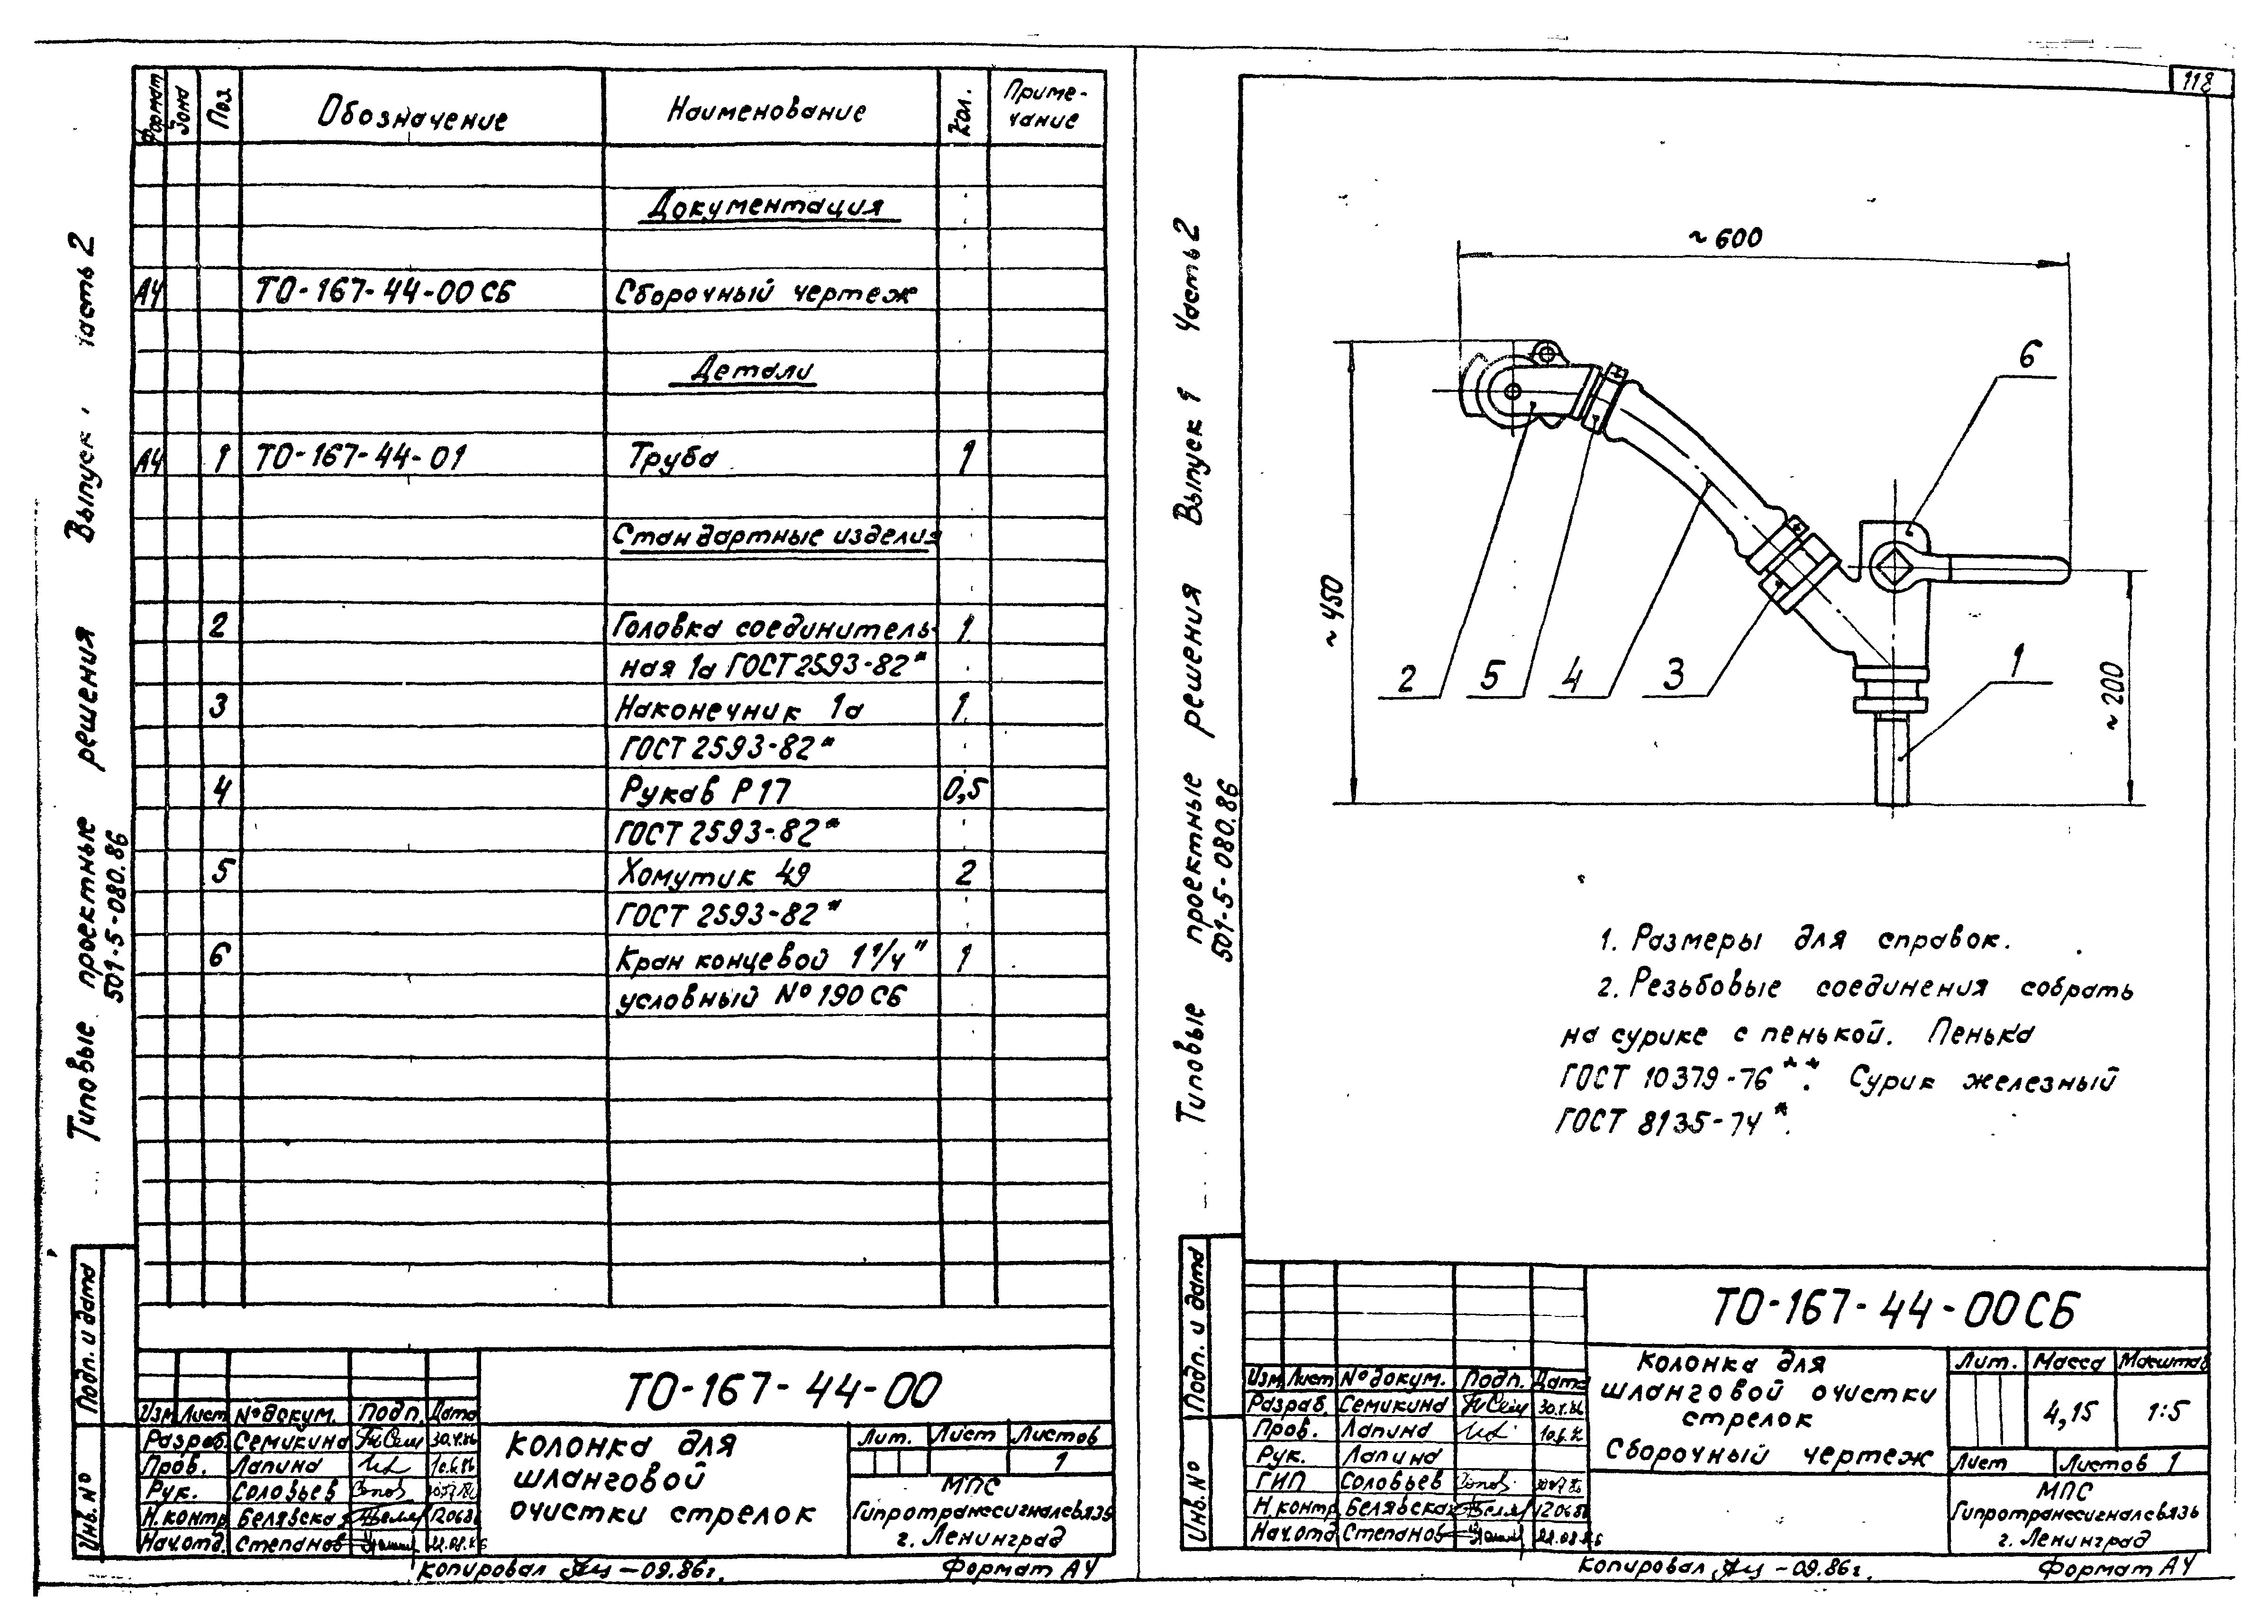 Формат
Зона
Поз
Обозначение
Наименование
Кол.
Приме-
чание
Документация
А4 ТО-167-44-00 СБ Сборочный чертеж
Детали
А4 1 ТО-167-44-01 Труба 1
Стандартные изделия
2 Головка соединитель- 1
ная 1а ГОСТ 2593-82*
3 Наконечник 1а 1
ГОСТ 2593-82*
4 Рукав Р17 0,5
ГОСТ 2593-82*
5 Хомутик 49 2
ГОСТ 2593-82*
6 Кран концевой 1 1/4" 1
условный №190 СБ
Типовые проектные решения Выпуск часть 2
501-5-080.86
Подп. и дата
Инв. №
ТО-167-44-00
Изм Лист № докум. Подп. Дата
Разраб. Семикина 30.4.86
Пров. Лапина 10.6.86
Рук. Соловьев
Н.контр Белявская 12.06.86
Нач.отд. Степанов
Колонка для
шланговой
очистки стрелок
Лит. Лист Листов
1
МПС
Гипротранссигналсвязь
г. Ленинград
Копировал -09.86г. Формат А4
118
Типовые проектные решения Выпуск 1 Часть 2
501-5-080.86
~600
~450
~200
6
2 5 4 3 1
1. Размеры для справок.
2. Резьбовые соединения собрать
на сурике с пенькой. Пенька
ГОСТ 10379-76**. Сурик железный
ГОСТ 8135-74*.
Подп. и дата
Инв. №
ТО-167-44-00СБ
Изм Лист № докум. Подп. Дата
Разраб. Семикина 30.4.86
Пров. Лапина 10.6.86
Рук. Лапина
ГИП Соловьев
Н.контр Белявская 12.06.86
Нач.отд Степанов
Колонка для
шланговой очистки
стрелок
Сборочный чертеж
Лит. Масса Масштаб
4,15 1:5
Лист Листов 1
МПС
Гипротранссигналсвязь
г. Ленинград
Копировал -09.86г. Формат А4